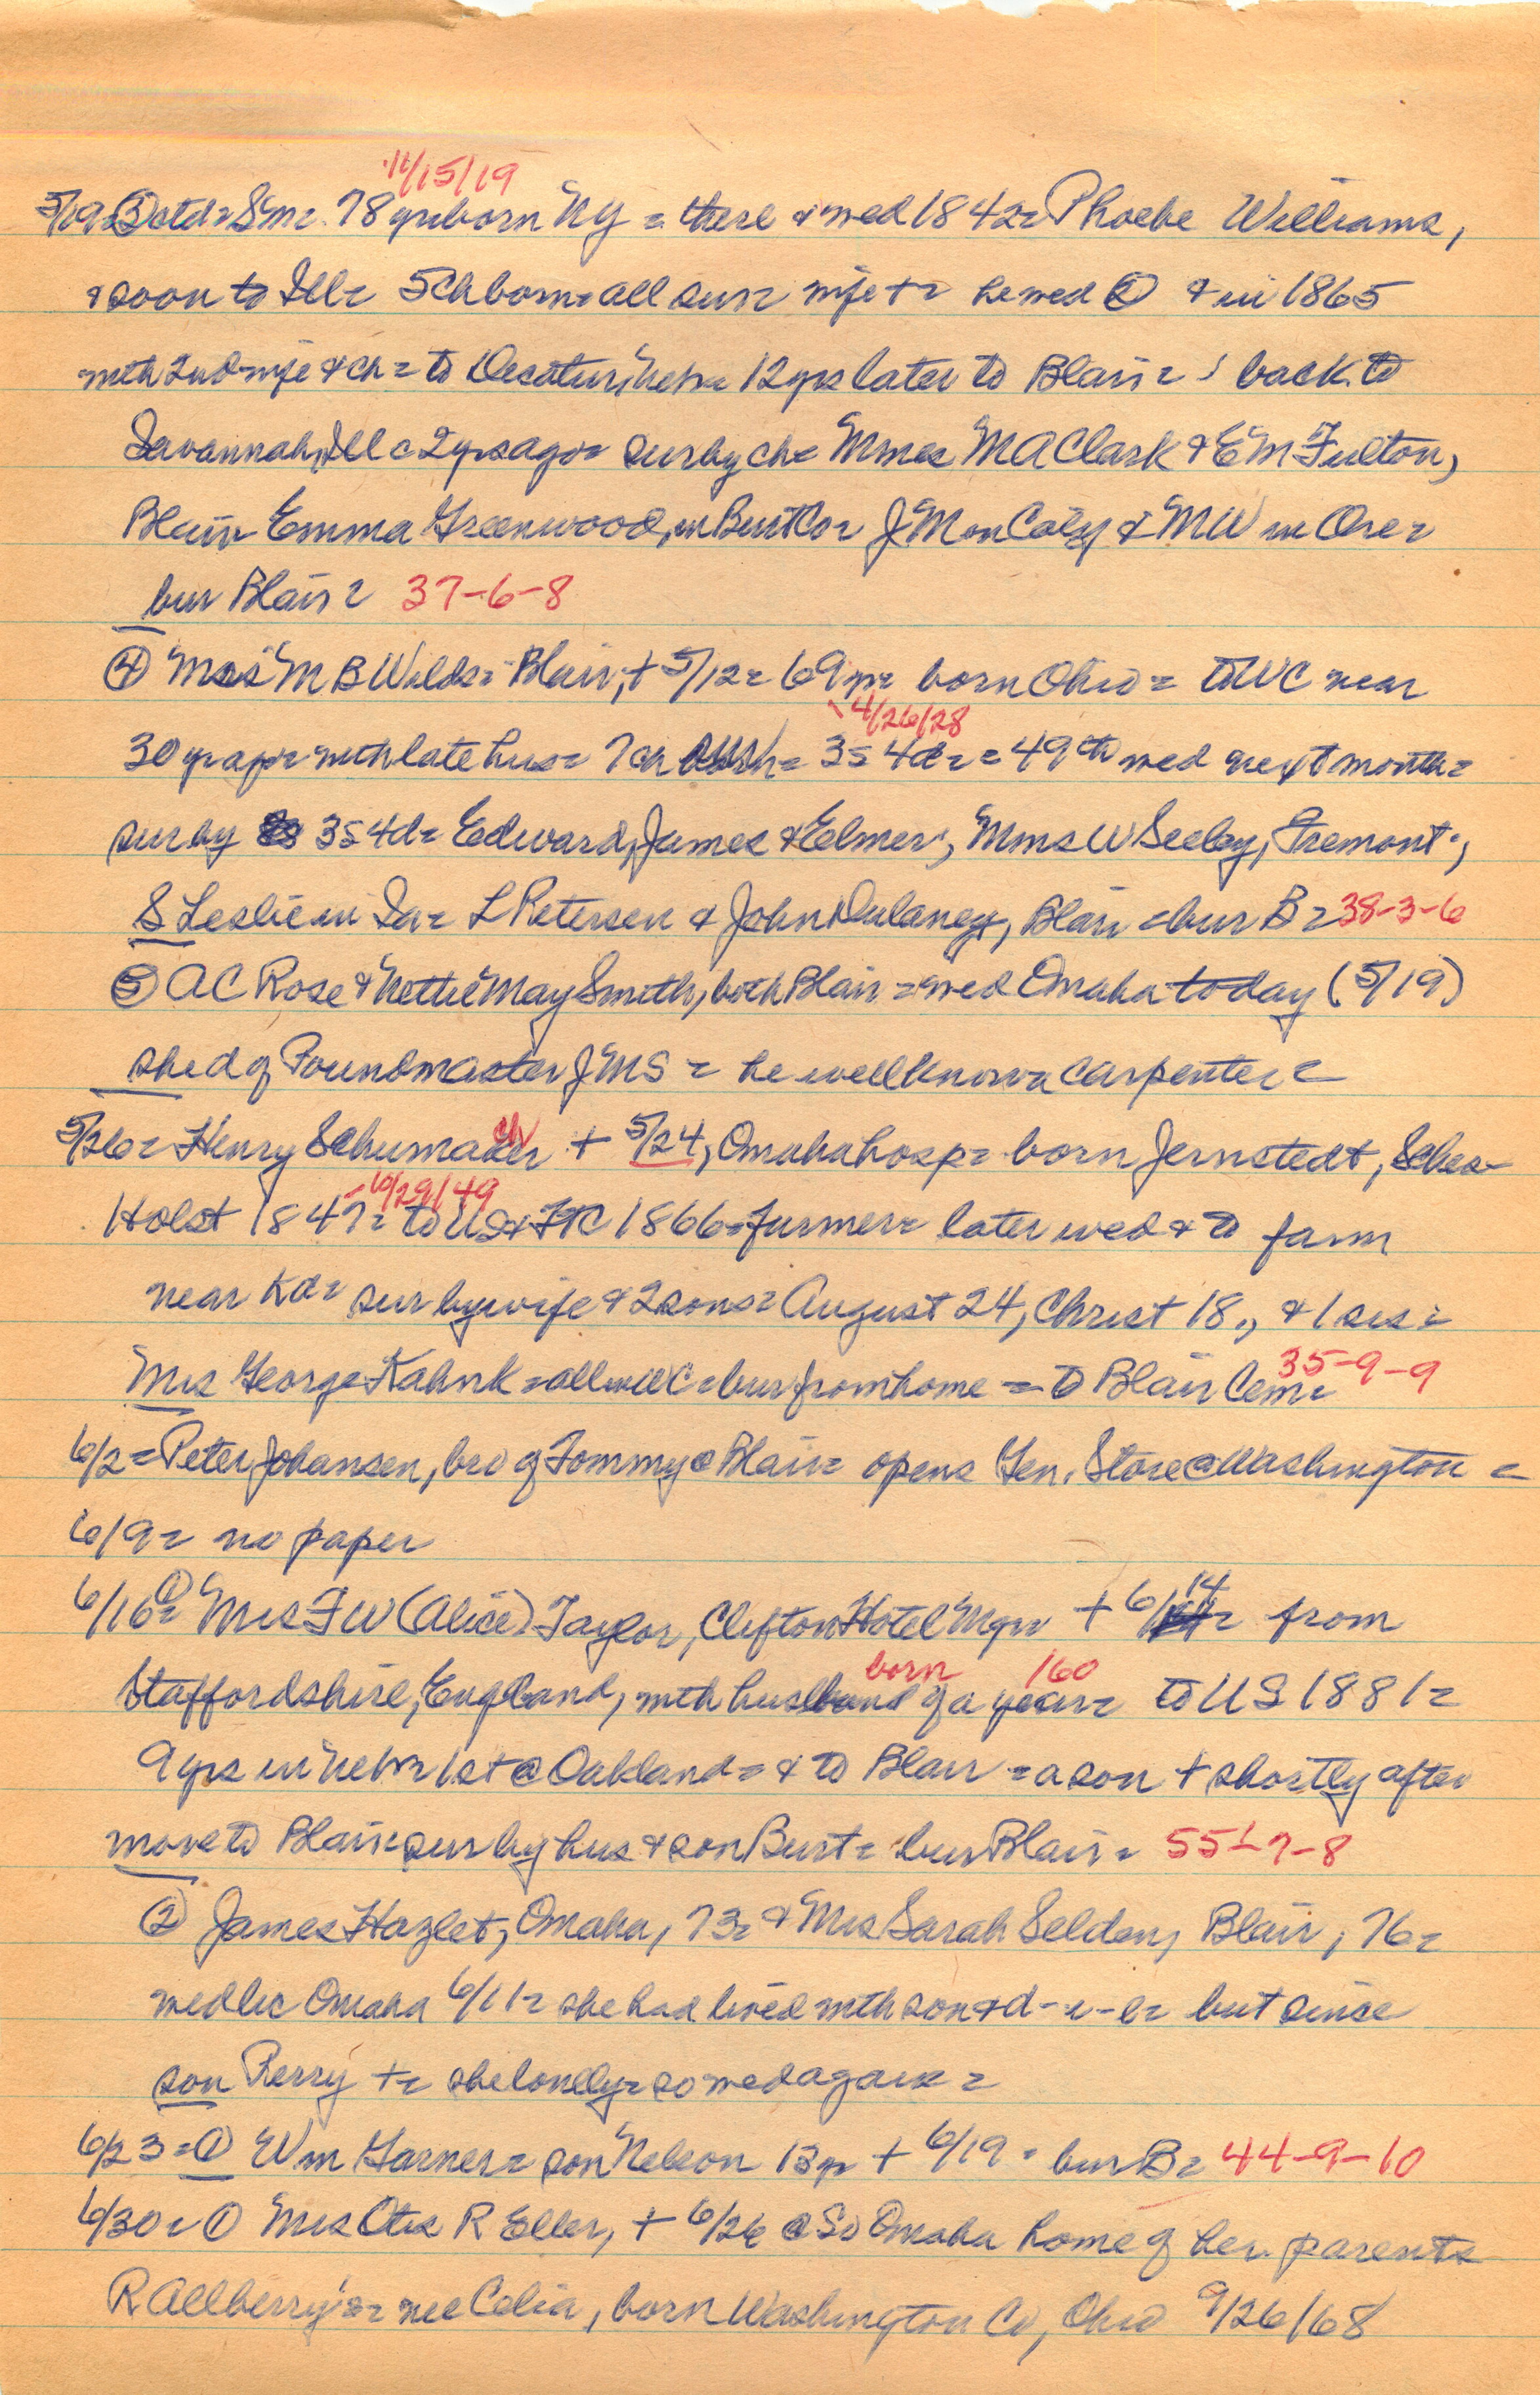 11/15/19
5/19=③ctd=Sm= 78 yr=born NY = there & wed 1842= Phoebe Williams,
& soon to Ill= 5 ch born=all sur= wife += he wed ② & in 1865
with 2nd wife & ch = to Decatur, Nebr= 12 yrs later to Blair= ; back to
Savannah, Ill c 2 yrs ago= sur by ch= Mmes M A Clark & E M Fulton,
Blair= Emma Greenwood, in Burt Co= J M on & M W in Ore=
bur Blair= 37-6-8
④ Mrs M B Wilds= Blair, + 5/12= 69 yr= born Ohio = to WC near
4/26/28
30 yr ago= with late hus= 7 ch = 3s 4d= = 49th wed next month=
sur by 3s 4d= Edward, James & Elmer; Mms W Seeley, Fremont;
S Leslie in Ia= L Petersen & John Dulaney, Blair =bur B= 38-3-6
⑤ A C Rose & Nettie May Smith, both Blair = wed Omaha today (5/19)
she d of Poundmaster J M S = he well known carpenter=
5/26= Henry Schumaker + 5/24, Omaha hosp= born Jernstedt, Schles-
10/29/49
Holst 1847= to US & FtC 1866=farmer= later wed & to farm
near Kd= sur by wife & 2 sons= August 24, Christ 18., & 1 sis=
Mrs George Kahnk =all WC=bur from home = to Blair Cem= 35-9-9
6/2= Peter Johansen, bro of Tommy @ Blair= opens Gen. Store @ Washington =
6/9= no paper
6/16=① Mrs F W (Alice) Taylor, Clifton Hotel Mgr + 6/14= from
born 160
Staffordshire, England, with husband of a year= to US 1881=
9 yrs in Nebr= 1st @ Oakland= & to Blair =a son + shortly after
move to Blair=sur by hus & son Burt= bur Blair= 55-7-8
② James Hazlet, Omaha, 73= & Mrs Sarah Selden, Blair, 76=
wed lic Omaha 6/11= she had lived with son & d-i-l= but since
son Perry += she lonely=so wed again =
6/23=① Wm Garner= son Nelson 13 yr + 6/19= bur B= 44-9-10
6/30=① Mrs Otis R Eller, + 6/26 @ So Omaha home of her parents
R Allberry's= nee Celia, born Washington Co, Ohio 9/26/68